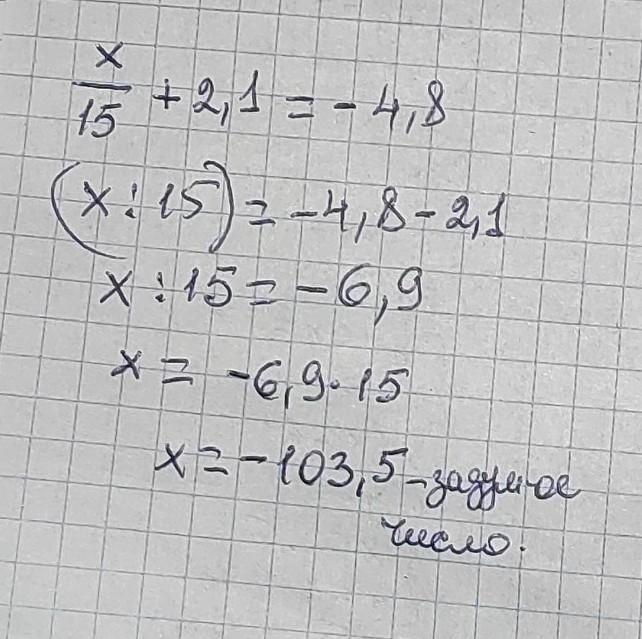 x/15 + 2,1 = - 4,8
(x : 15) = -4,8 - 2,1
x : 15 = -6,9
x = -6,9 · 15
x = -103,5 - задумное
число.